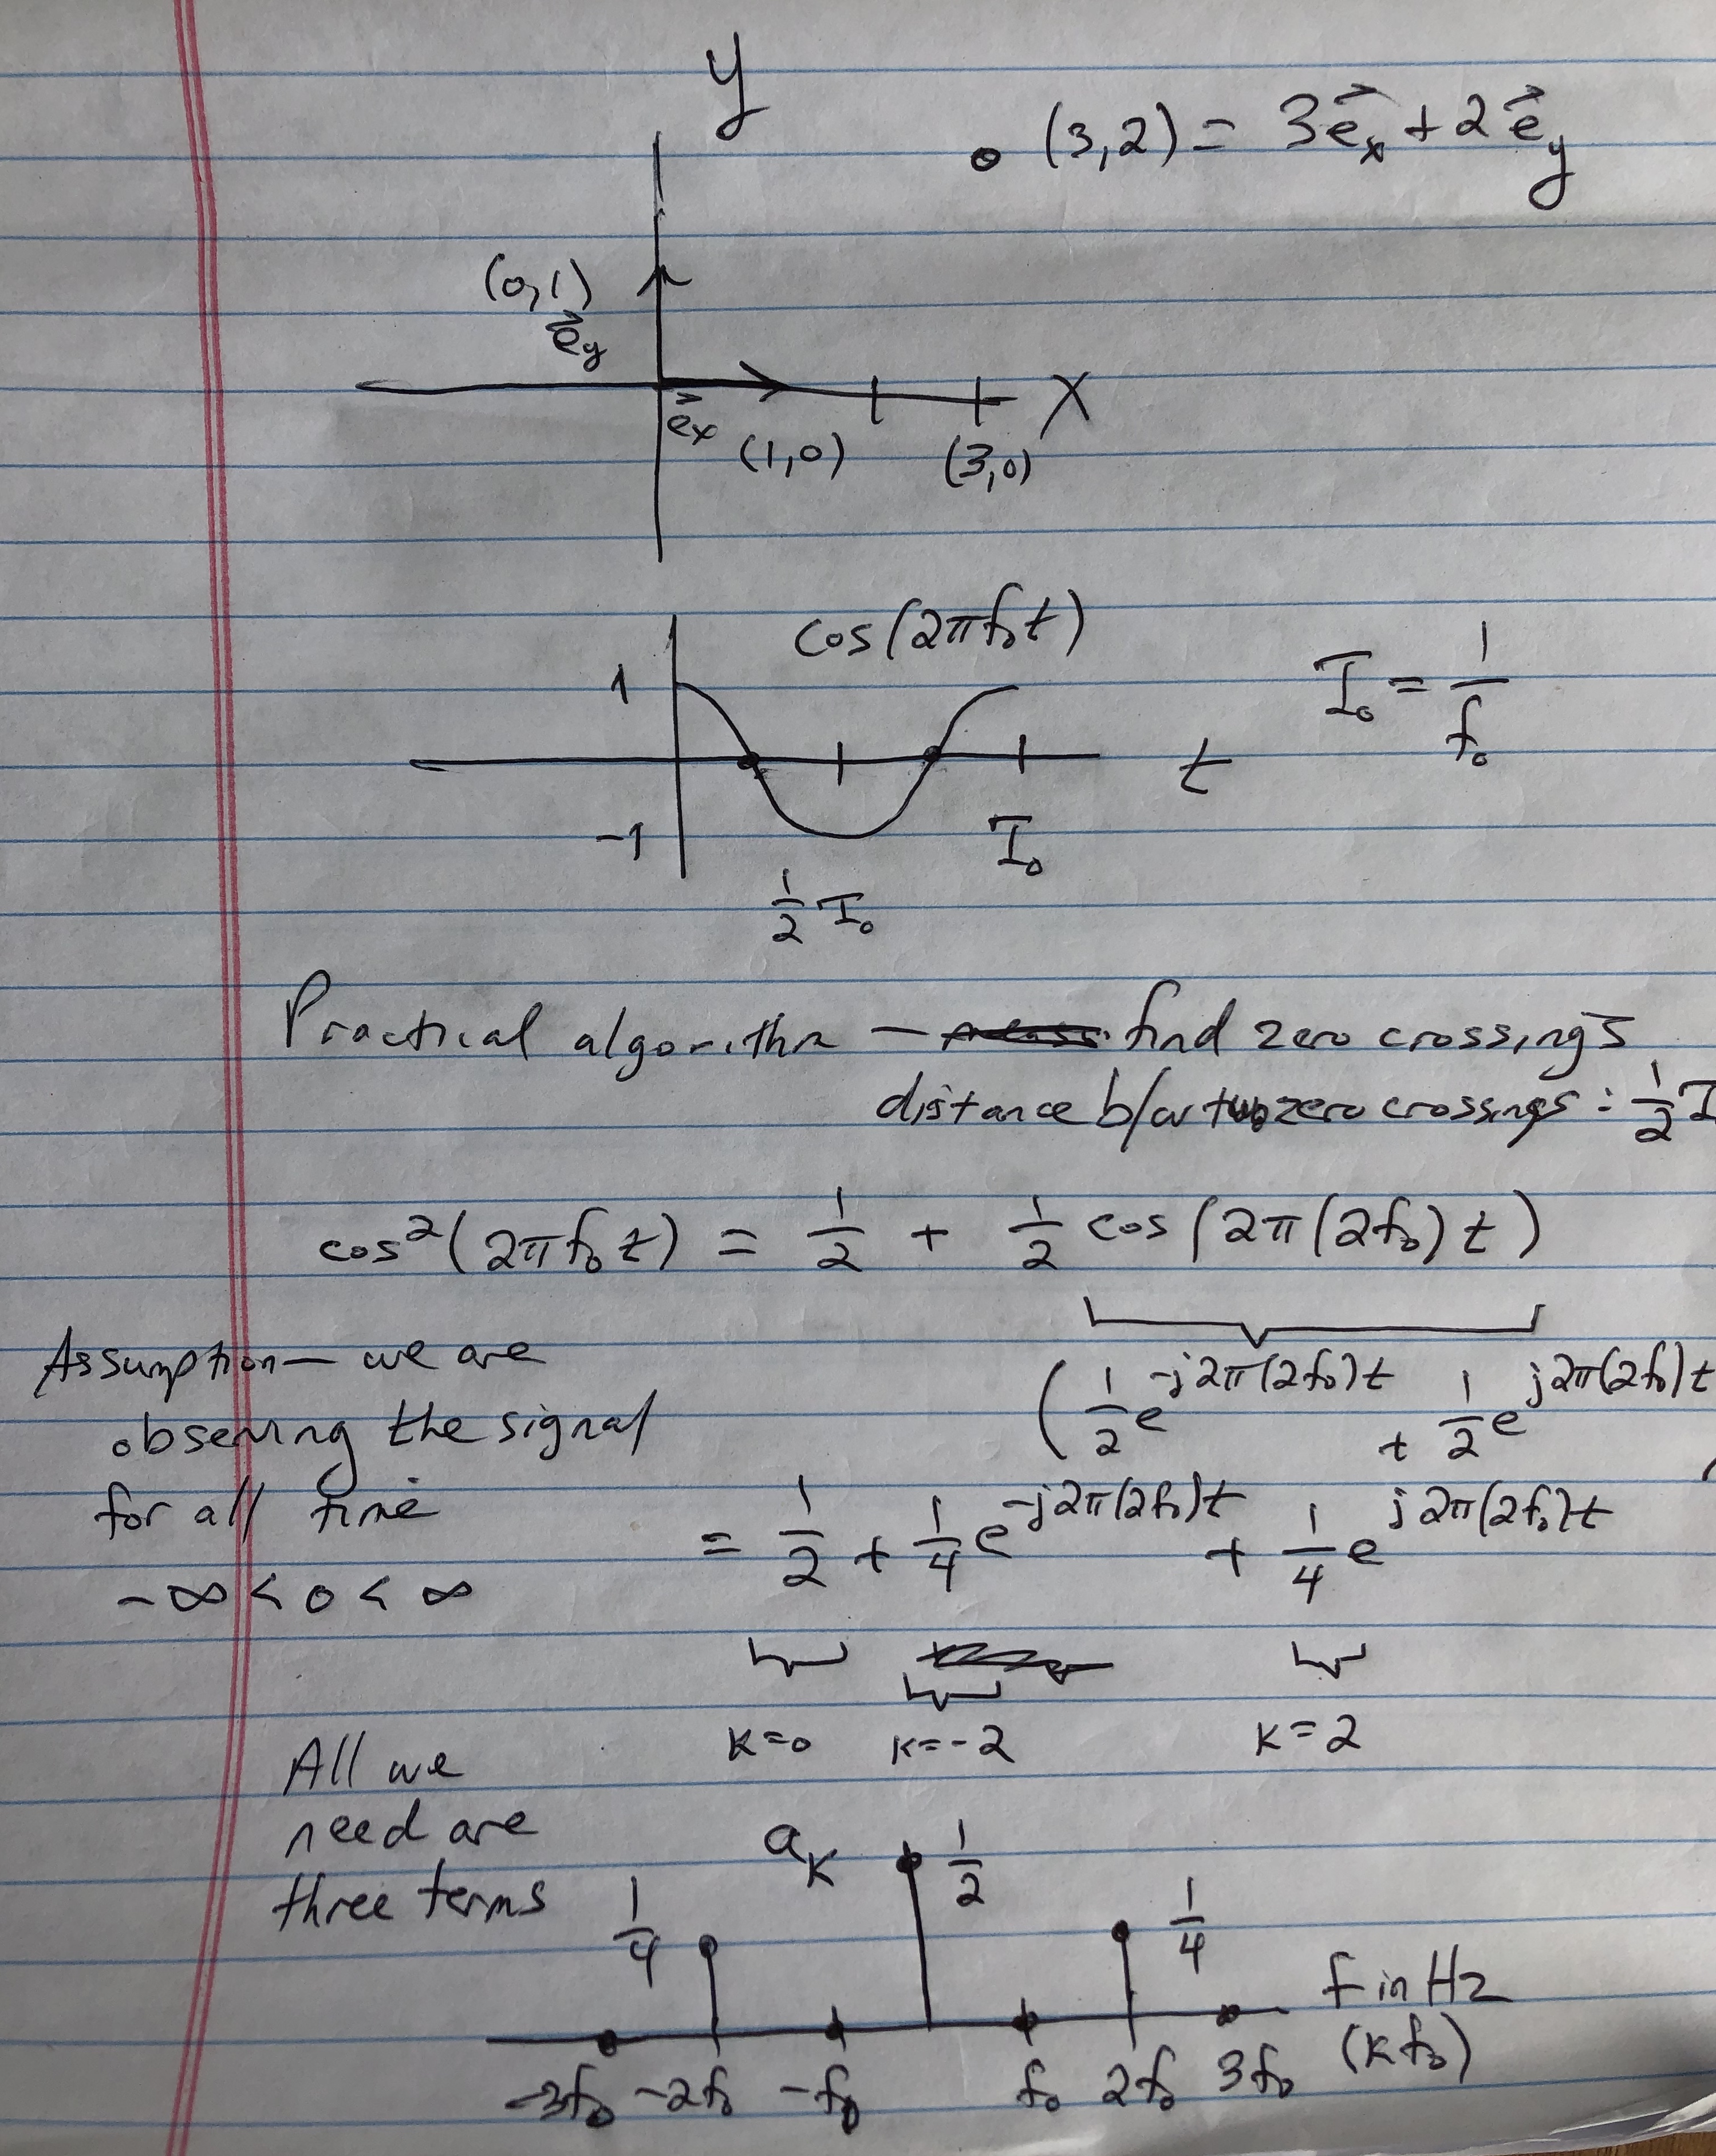 y
(3,2) = 3e⃗x + 2e⃗y
(0,1)
e⃗y
X
e⃗x
(1,0) (3,0)
cos(2πf₀t)
T₀ = 1/f₀
1
t
-1
T₀
1/2 T₀
Practical algorithm — find zero crossings
distance b/w two zero crossings: 1/2 T
cos²(2πf₀t) = 1/2 + 1/2 cos(2π(2f₀)t)
Assumption — we are
observing the signal
for all time
-∞ < 0 < ∞
(1/2 e^{-j2π(2f₀)t} + 1/2 e^{j2π(2f₀)t}
= 1/2 + 1/4 e^{-j2π(2f₀)t} + 1/4 e^{j2π(2f₀)t}
k=0 k=-2 k=2
All we
need are
three terms
aK
1/2
1/4
1/4
f in Hz
(kf₀)
-3f₀ -2f₀ -f₀ f₀ 2f₀ 3f₀